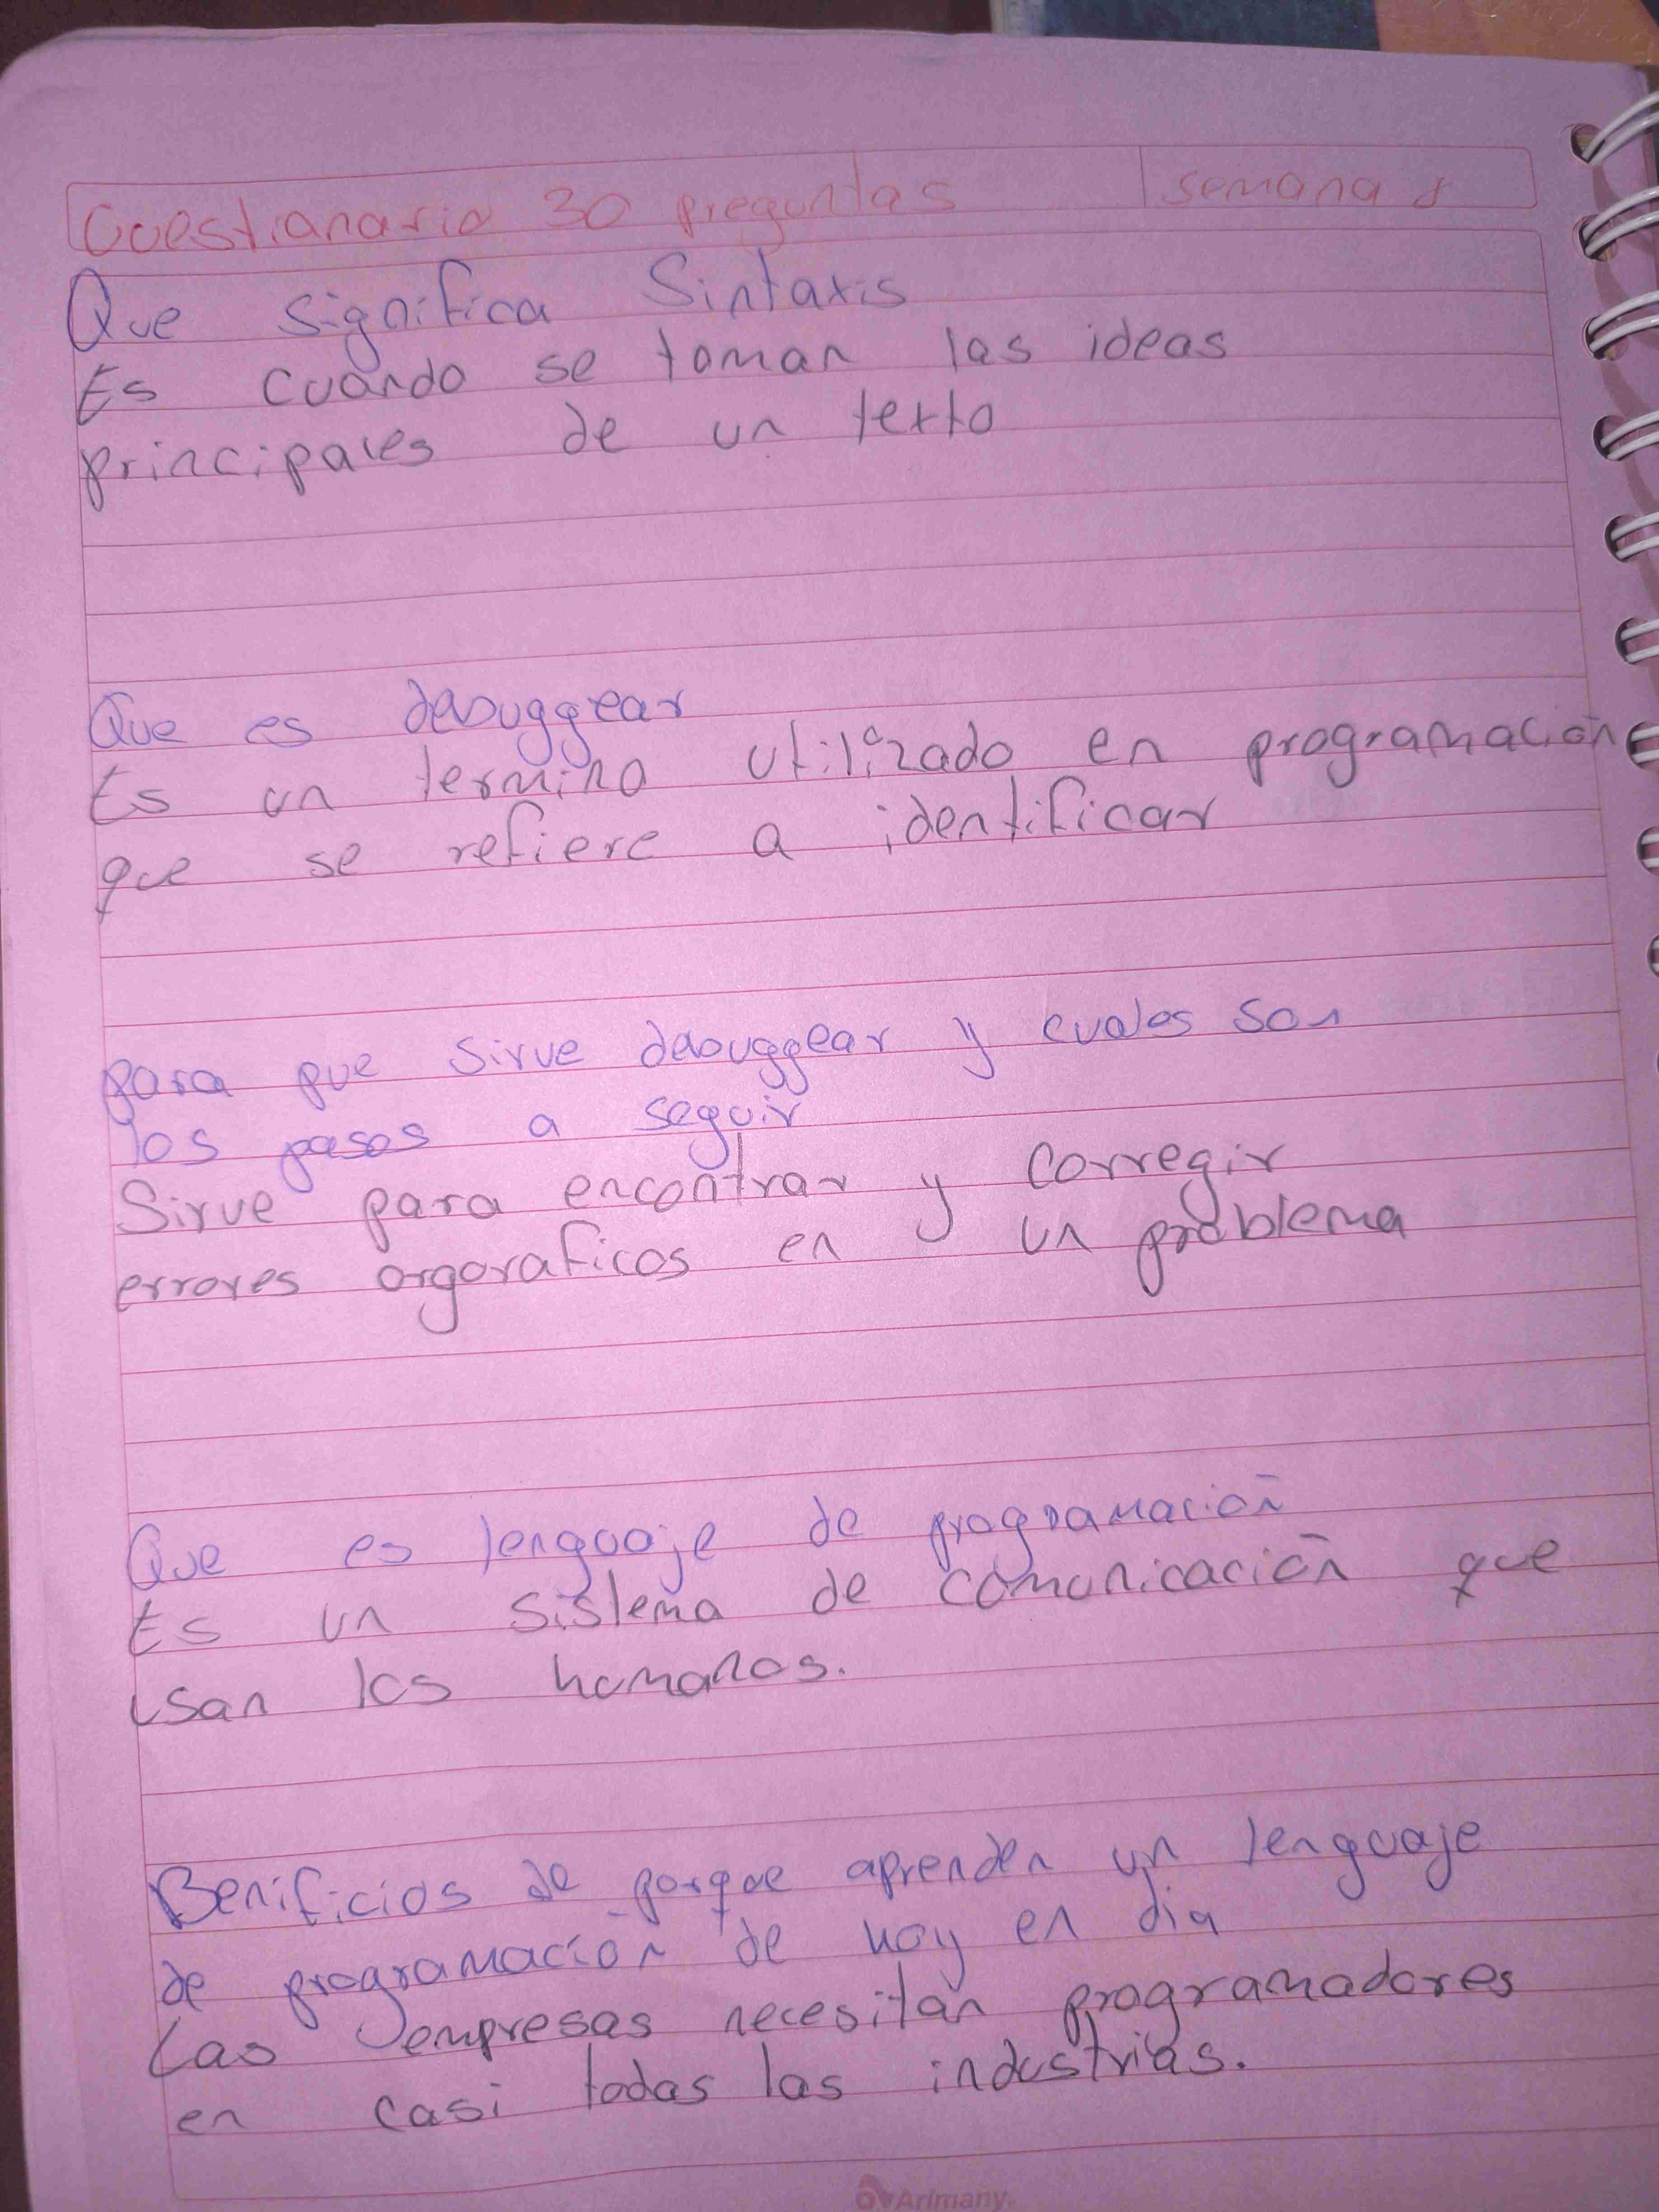 Cuestianario 30 preguntas semana 8
Que significa Sintaxis
Es cuando se toman las ideas
principales de un texto
Que es debuggear
Es un termino utilizado en programación
que se refiere a identificar
para que sirve debuggear y cuales son
los pasos a seguir
Sirve para encontrar y corregir
errores orgoraficos en un problema
Que es lenguaje de programación
Es un sistema de comunicación que
usan los humanos.
Benificios de porque aprenden un lenguaje
de programación de hoy en dia
Las empresas necesitan programadores
en casi todas las industrias.
Arimany